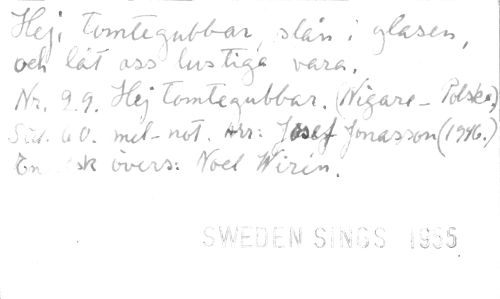 Hej, tomtegubbar, slån i glasen,
och låt oss lustiga vara.
Nr. 9.9. Hej tomtegubbar. (Nigare-Polska,)
Sid. 60. mel-not. Arr: Josef Jonasson (1946.)
övers: Noel Wirén.
SWEDEN SINGS 1955